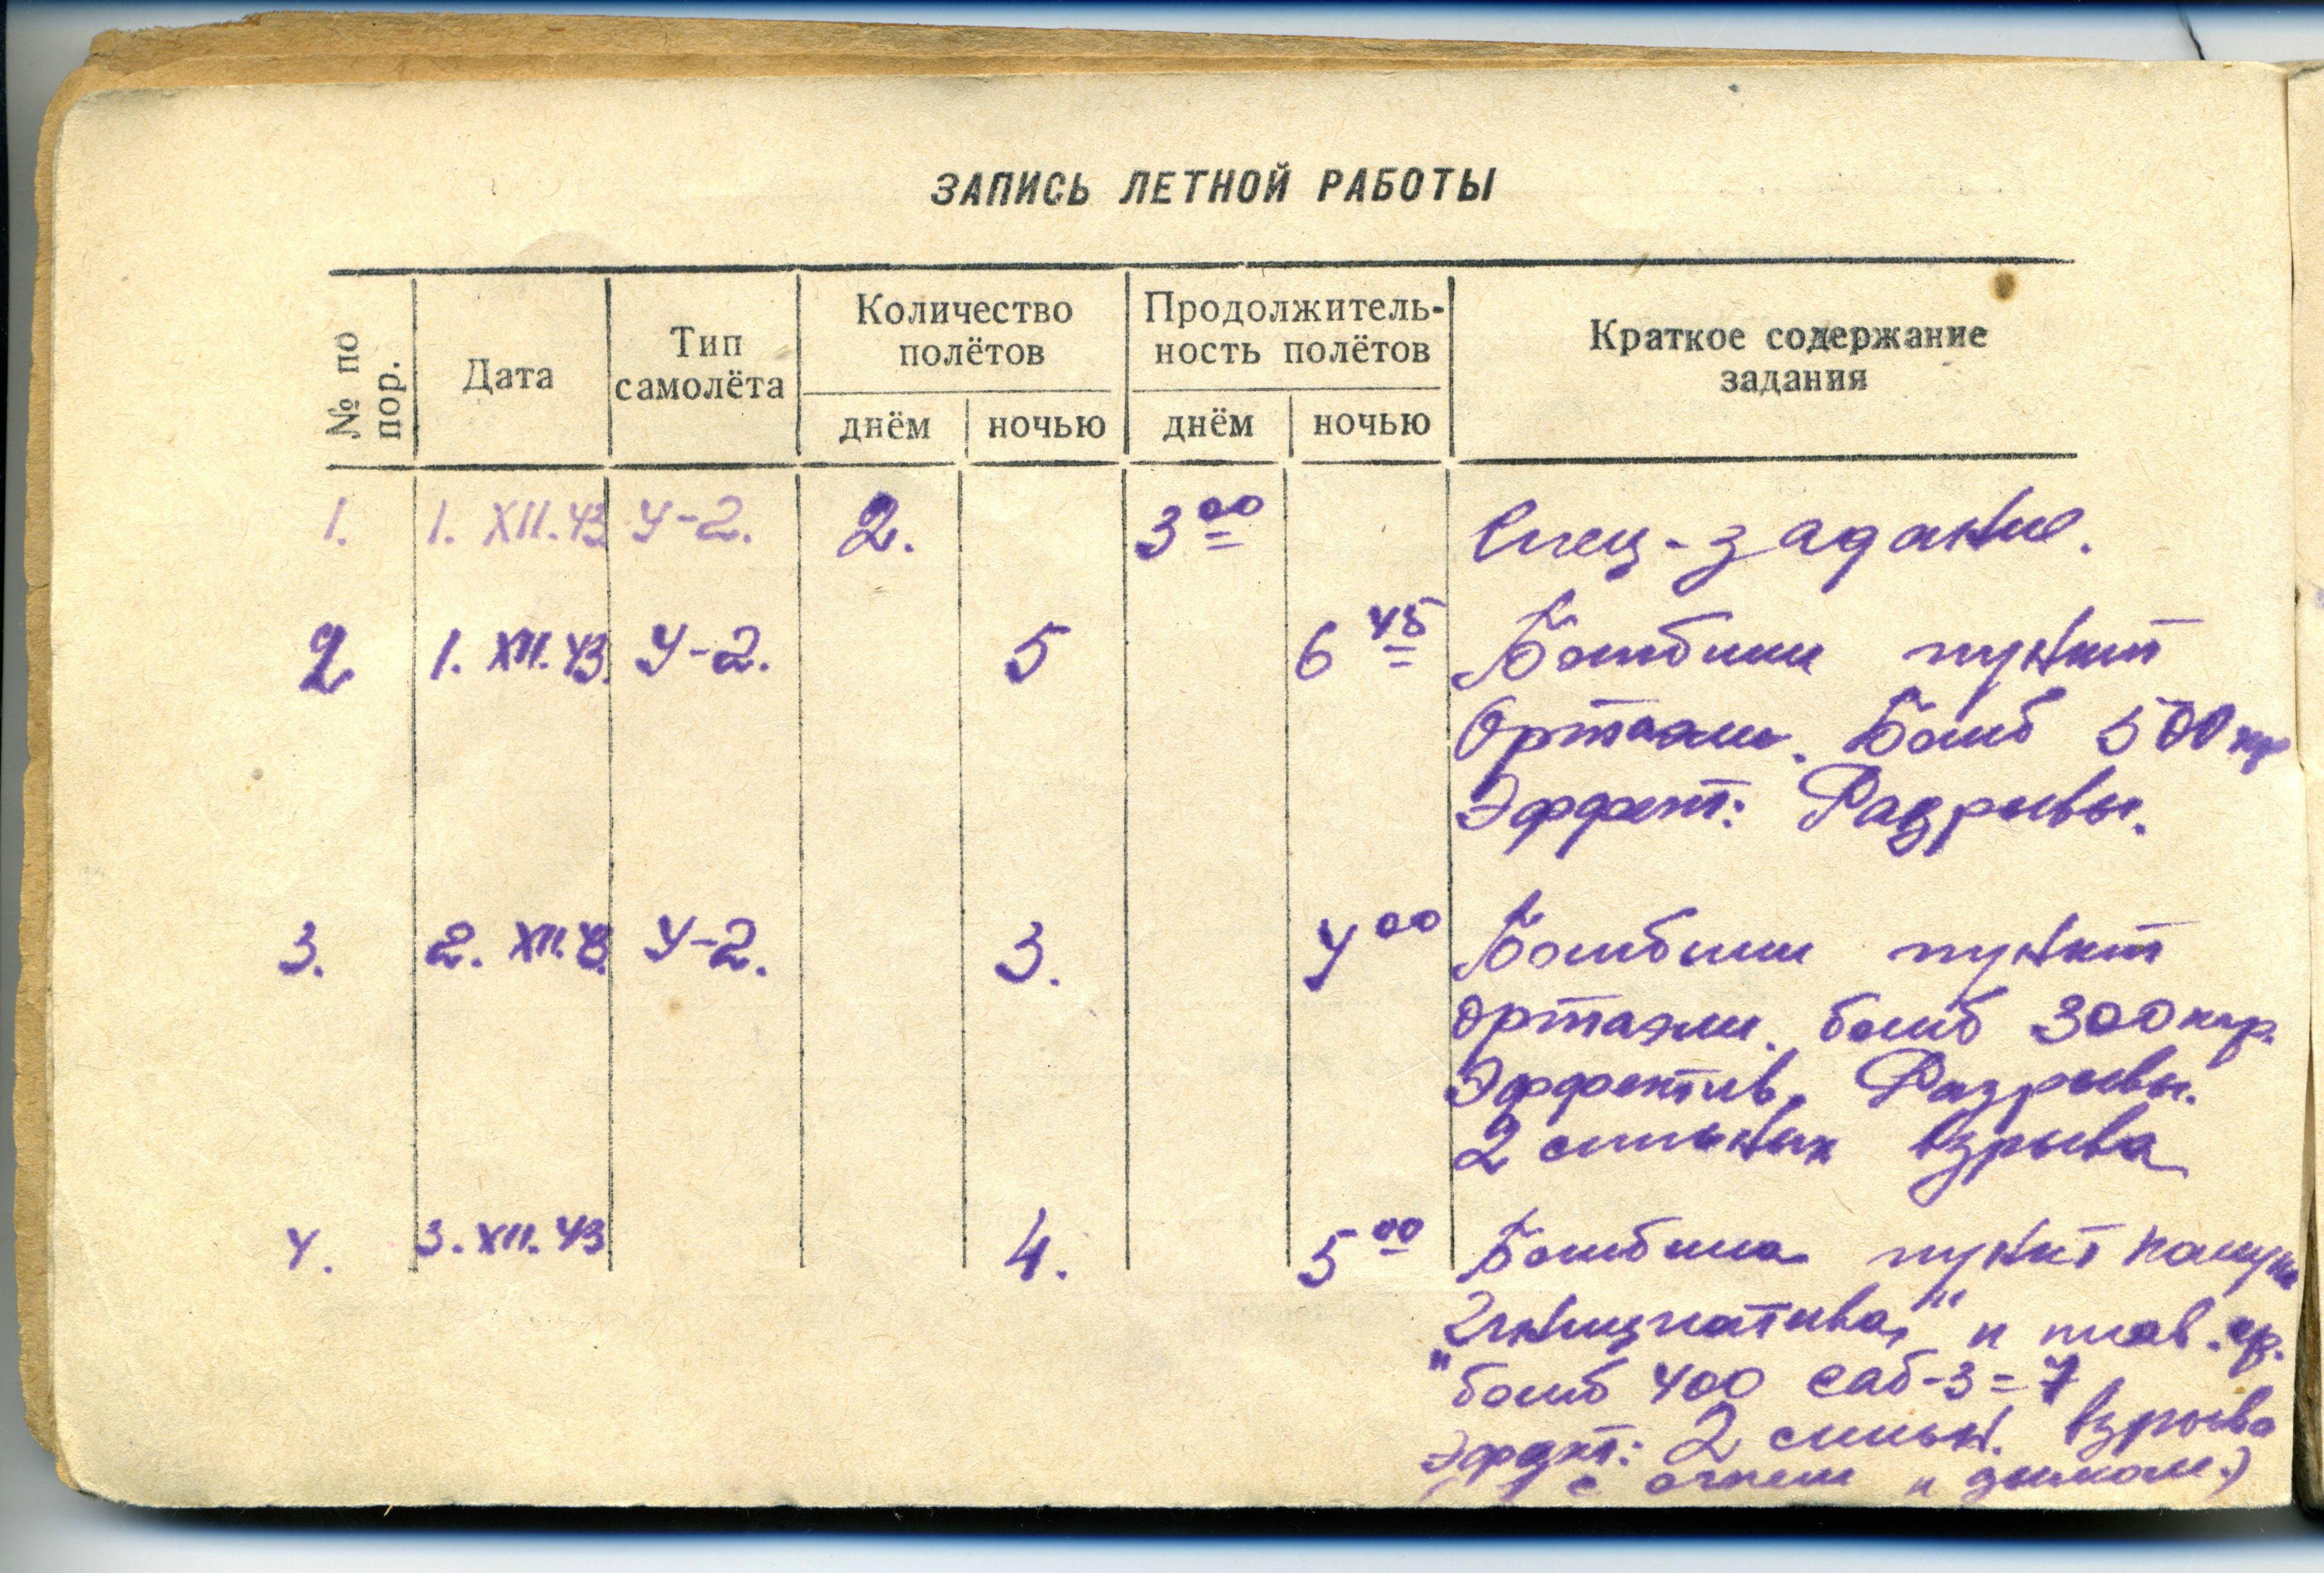 ЗАПИСЬ ЛЕТНОЙ РАБОТЫ
№ по пор.
Дата
Тип самолёта
Количество полётов
днём
ночью
Продолжительность полётов
днём
ночью
Краткое содержание задания
1. 1. XII.43 У-2. 2. 3 00 Спец-задание.
2 1. XII.43. У-2. 5 6 45 Бомбили пункт
Ортаэли. Бомб 500 кгр
Эффект: Разрывы.
3. 2. XII.43. У-2. 3. 4 00 Бомбили пункт
Ортаэли. бомб 300 кгр.
Эффектив. Разрывы.
2 сильных взрыва
4. 3. XII.43 4. 5 00 Бомбила пункт
"Инициатива" и
бомб 400 Саб-3=7
Эффект: 2 сильн. взрыва
с огнем и дымом.)